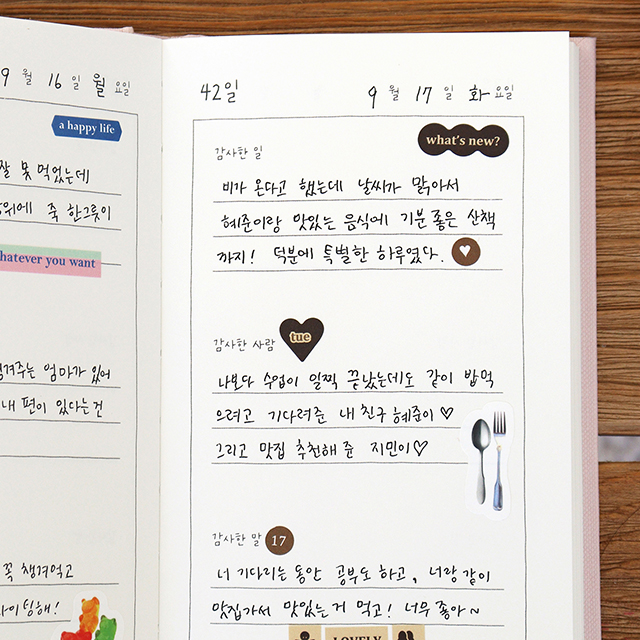 9 월 16 일 월 요일
a happy life
잘 못 먹었는데
죽 한그릇이
hatever you want
겨주는 엄마가 있어
내 편이 있다는건
꼭 챙겨먹고
42일
9 월 17 일 화 요일
감사한 일
what's new?
비가 온다고 했는데 날씨가 맑아서
혜준이랑 맛있는 음식에 기분 좋은 산책
까지! 덕분에 특별한 하루였다.
감사한 사람
tue
나보다 수업이 일찍 끝났는데도 같이 밥먹
으려고 기다려준 내 친구 혜준이♡
그리고 맛집 추천해 준 지민이♡
감사한 말
17
너 기다리는 동안 공부도 하고, 너랑 같이
맛집가서 맛있는거 먹고! 너무 좋아~
LOVELY